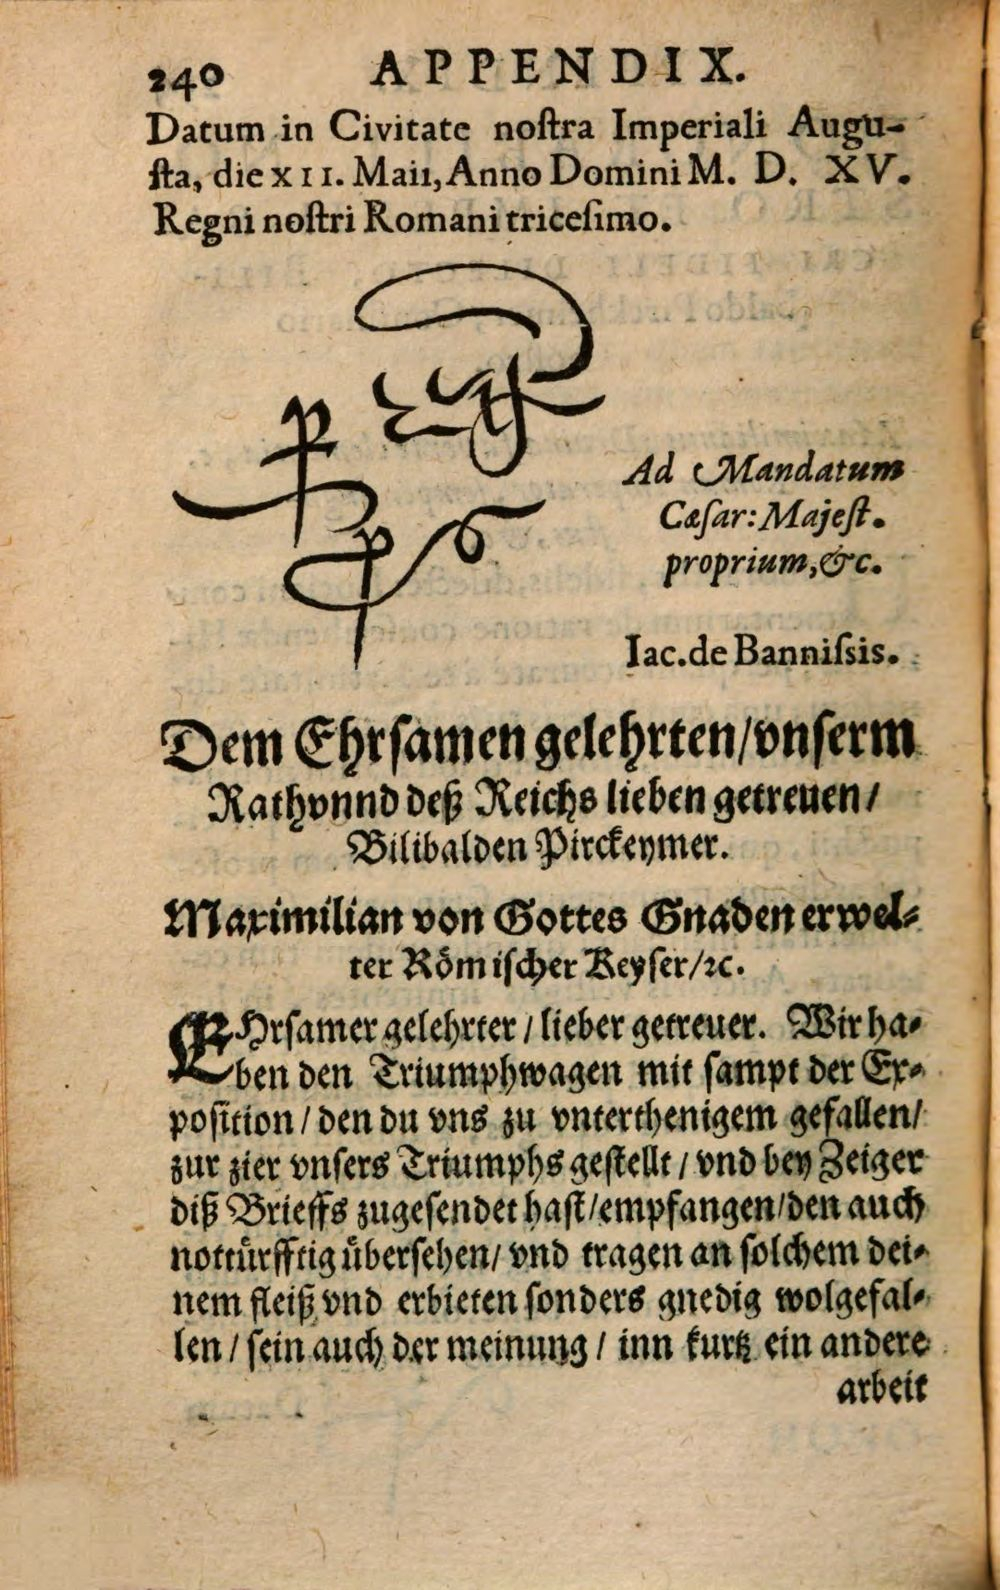 240 APPENDIX.
Datum in Civitate noſtra Imperiali Augu-
ſta, die XII. Maii, Anno Domini M. D. XV.
Regni noſtri Romani triceſimo.
Ad Mandatum
Cæſar: Majeſt.
proprium, &c.
Iac. de Banniſsis.
Dem Ehrſamen gelehrten/vnſerm
Rath vnnd deß Reichs lieben getreuen/
Bilibalden Pirckeymer.
Maximilian von Gottes Gnaden erwel⸗
ter Römiſcher Keyſer/ꝛc.
EHrſamer gelehrter/lieber getreuer. Wir ha⸗
ben den Triumphwagen mit ſampt der Ex⸗
poſition/den du vns zu vnterthenigem gefallen/
zur zier vnſers Triumphs geſtellt/vnd bey Zeiger
diß Brieffs zugeſendet haſt/empfangen/den auch
nottürfftig überſehen/vnd tragen an ſolchem dei⸗
nem fleiß vnd erbieten ſonders gnedig wolgefal⸗
len/ſein auch der meinung/inn kurtz ein andere
arbeit